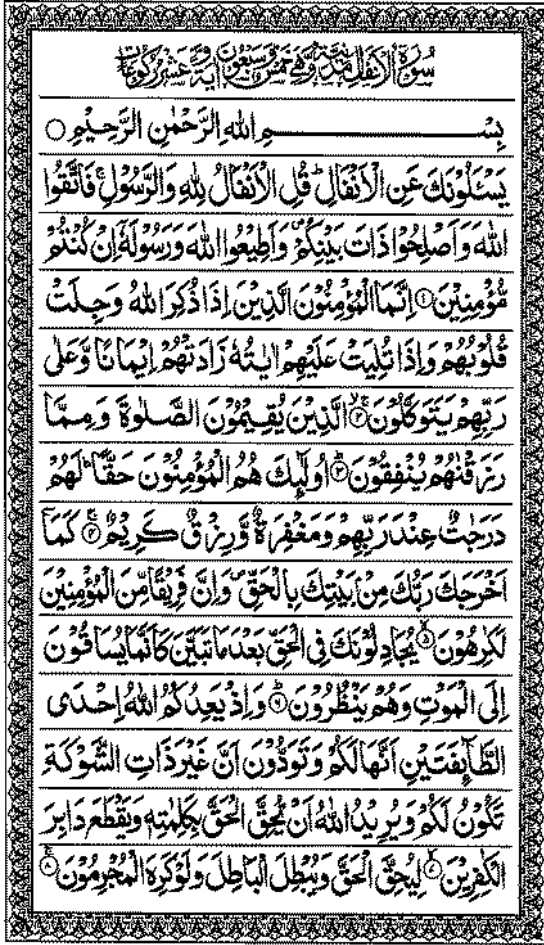 سُوْرَةُ الْاَنْفَالِ مَدَنِيَّةٌ وَّهِيَ خَمْسٌ وَّسَبْعُوْنَ اٰيَةً وَّعَشْرُ رُكُوْعَاتٍ
بِسْمِ اللهِ الرَّحْمٰنِ الرَّحِيْمِ ○
يَسْـَٔلُوْنَكَ عَنِ الْاَنْفَالِ ؕ قُلِ الْاَنْفَالُ لِلّٰهِ وَالرَّسُوْلِ ۚ فَاتَّقُوا
اللهَ وَاَصْلِحُوْا ذَاتَ بَيْنِكُمْ ۪ وَاَطِيْعُوا اللهَ وَرَسُوْلَهٗۤ اِنْ كُنْتُمْ
مُّؤْمِنِيْنَ ۝۱ اِنَّمَا الْمُؤْمِنُوْنَ الَّذِيْنَ اِذَا ذُكِرَ اللهُ وَجِلَتْ
قُلُوْبُهُمْ وَاِذَا تُلِيَتْ عَلَيْهِمْ اٰيٰتُهٗ زَادَتْهُمْ اِيْمَانًا وَّعَلٰى
رَبِّهِمْ يَتَوَكَّلُوْنَ ۝۲ الَّذِيْنَ يُقِيْمُوْنَ الصَّلٰوةَ وَمِمَّا
رَزَقْنٰهُمْ يُنْفِقُوْنَ ۝۳ اُولٰٓئِكَ هُمُ الْمُؤْمِنُوْنَ حَقًّا ؕ لَهُمْ
دَرَجٰتٌ عِنْدَ رَبِّهِمْ وَمَغْفِرَةٌ وَّرِزْقٌ كَرِيْمٌ ۝۴ كَمَاۤ
اَخْرَجَكَ رَبُّكَ مِنْۢ بَيْتِكَ بِالْحَقِّ ۪ وَاِنَّ فَرِيْقًا مِّنَ الْمُؤْمِنِيْنَ
لَكٰرِهُوْنَ ۝۵ يُجَادِلُوْنَكَ فِى الْحَقِّ بَعْدَ مَا تَبَيَّنَ كَاَنَّمَا يُسَاقُوْنَ
اِلَى الْمَوْتِ وَهُمْ يَنْظُرُوْنَ ۝۶ وَاِذْ يَعِدُكُمُ اللهُ اِحْدَى
الطَّآئِفَتَيْنِ اَنَّهَا لَكُمْ وَتَوَدُّوْنَ اَنَّ غَيْرَ ذَاتِ الشَّوْكَةِ
تَكُوْنُ لَكُمْ وَيُرِيْدُ اللهُ اَنْ يُّحِقَّ الْحَقَّ بِكَلِمٰتِهٖ وَيَقْطَعَ دَابِرَ
الْكٰفِرِيْنَ ۝۷ لِيُحِقَّ الْحَقَّ وَيُبْطِلَ الْبَاطِلَ وَلَوْ كَرِهَ الْمُجْرِمُوْنَ ۝۸